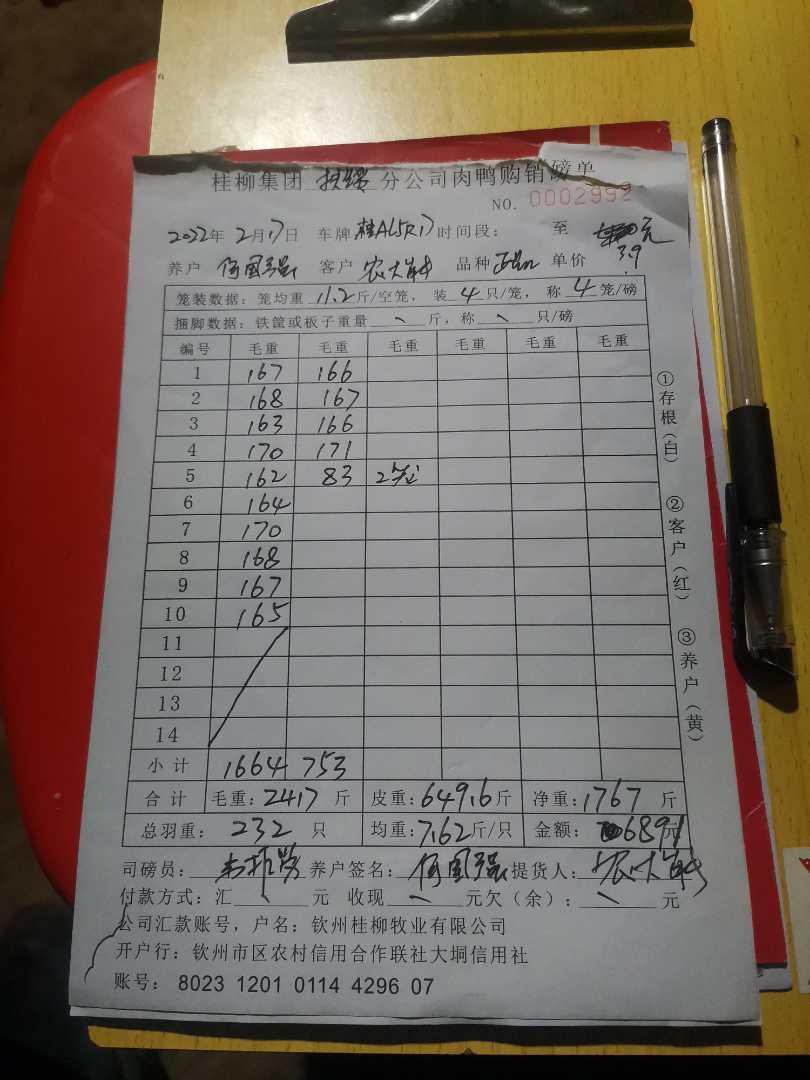 桂柳集团 扶绥 分公司肉鸭购销磅单
NO. 0002992
2022年 2月17日 车牌 桂A 时间段: 至 元
养户 何国强 客户 农大 品种 正品 单价 3.9
笼装数据: 笼均重 11.2 斤/空笼, 装 4 只/笼, 称 4 笼/磅
捆脚数据: 铁筐或板子重量 斤, 称 只/磅
编号 毛重 毛重 毛重 毛重 毛重 毛重
1 167 166
2 168 167
3 163 166
4 170 171
5 162 83 2笼
6 164
7 170
8 168
9 167
10 165
11
12
13
14
小计 1664 753
合计 毛重: 2417 斤 皮重: 649.6 斤 净重: 1767 斤
总羽重: 232 只 均重: 7.62 斤/只 金额: 6891 元
司磅员: 养户签名: 何国强 提货人: 农大
付款方式: 汇 元 收现 元欠(余): 元
公司汇款账号, 户名: 钦州桂柳牧业有限公司
开户行: 钦州市区农村信用合作联社大垌信用社
账号: 8023 1201 0114 4296 07
①存根(白) ②客户(红) ③养户(黄)